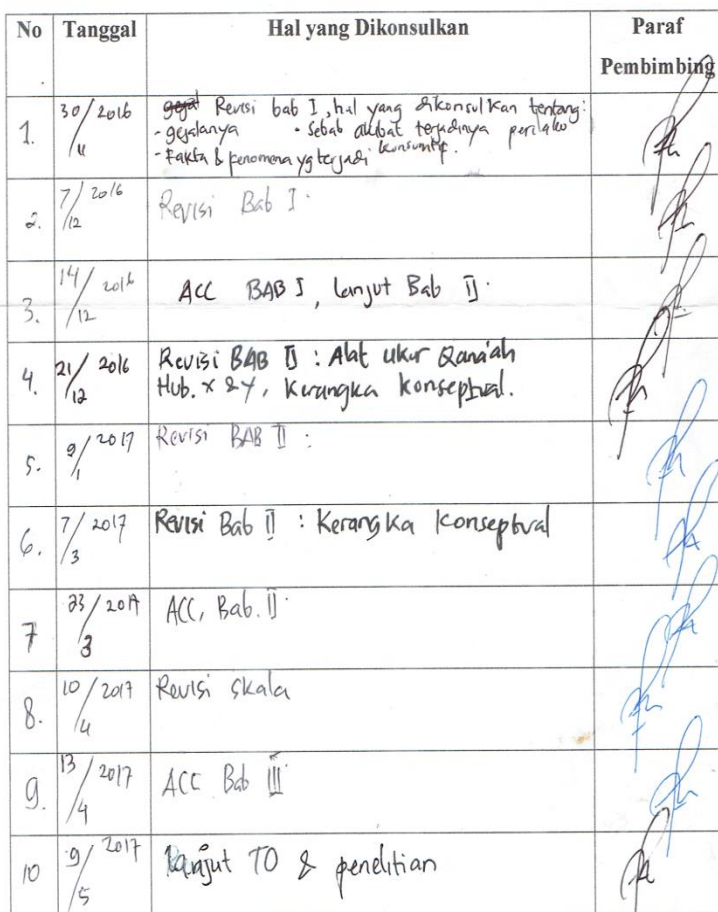 No Tanggal Hal yang Dikonsulkan Paraf
Pembimbing
1. 30/11 2016 Revisi bab I, hal yang dikonsulkan tentang:
- gejalanya - sebab akibat terjadinya perilaku
- Fakta & fenomena yg terjadi konsumtif.
2. 7/12 2016 Revisi Bab I.
3. 14/12 2016 ACC BAB I, lanjut Bab II.
4. 21/12 2016 Revisi BAB II : Alat ukur Qana'ah
Hub. x & y, Kerangka konseptual.
5. 9/1 2017 Revisi BAB II :
6. 7/3 2017 Revisi Bab II : Kerangka konseptual
7 23/3 2017 ACC, Bab. II.
8. 10/4 2017 Revisi skala
9. 13/4 2017 ACC Bab III
10 9/5 2017 Lanjut TO & penelitian